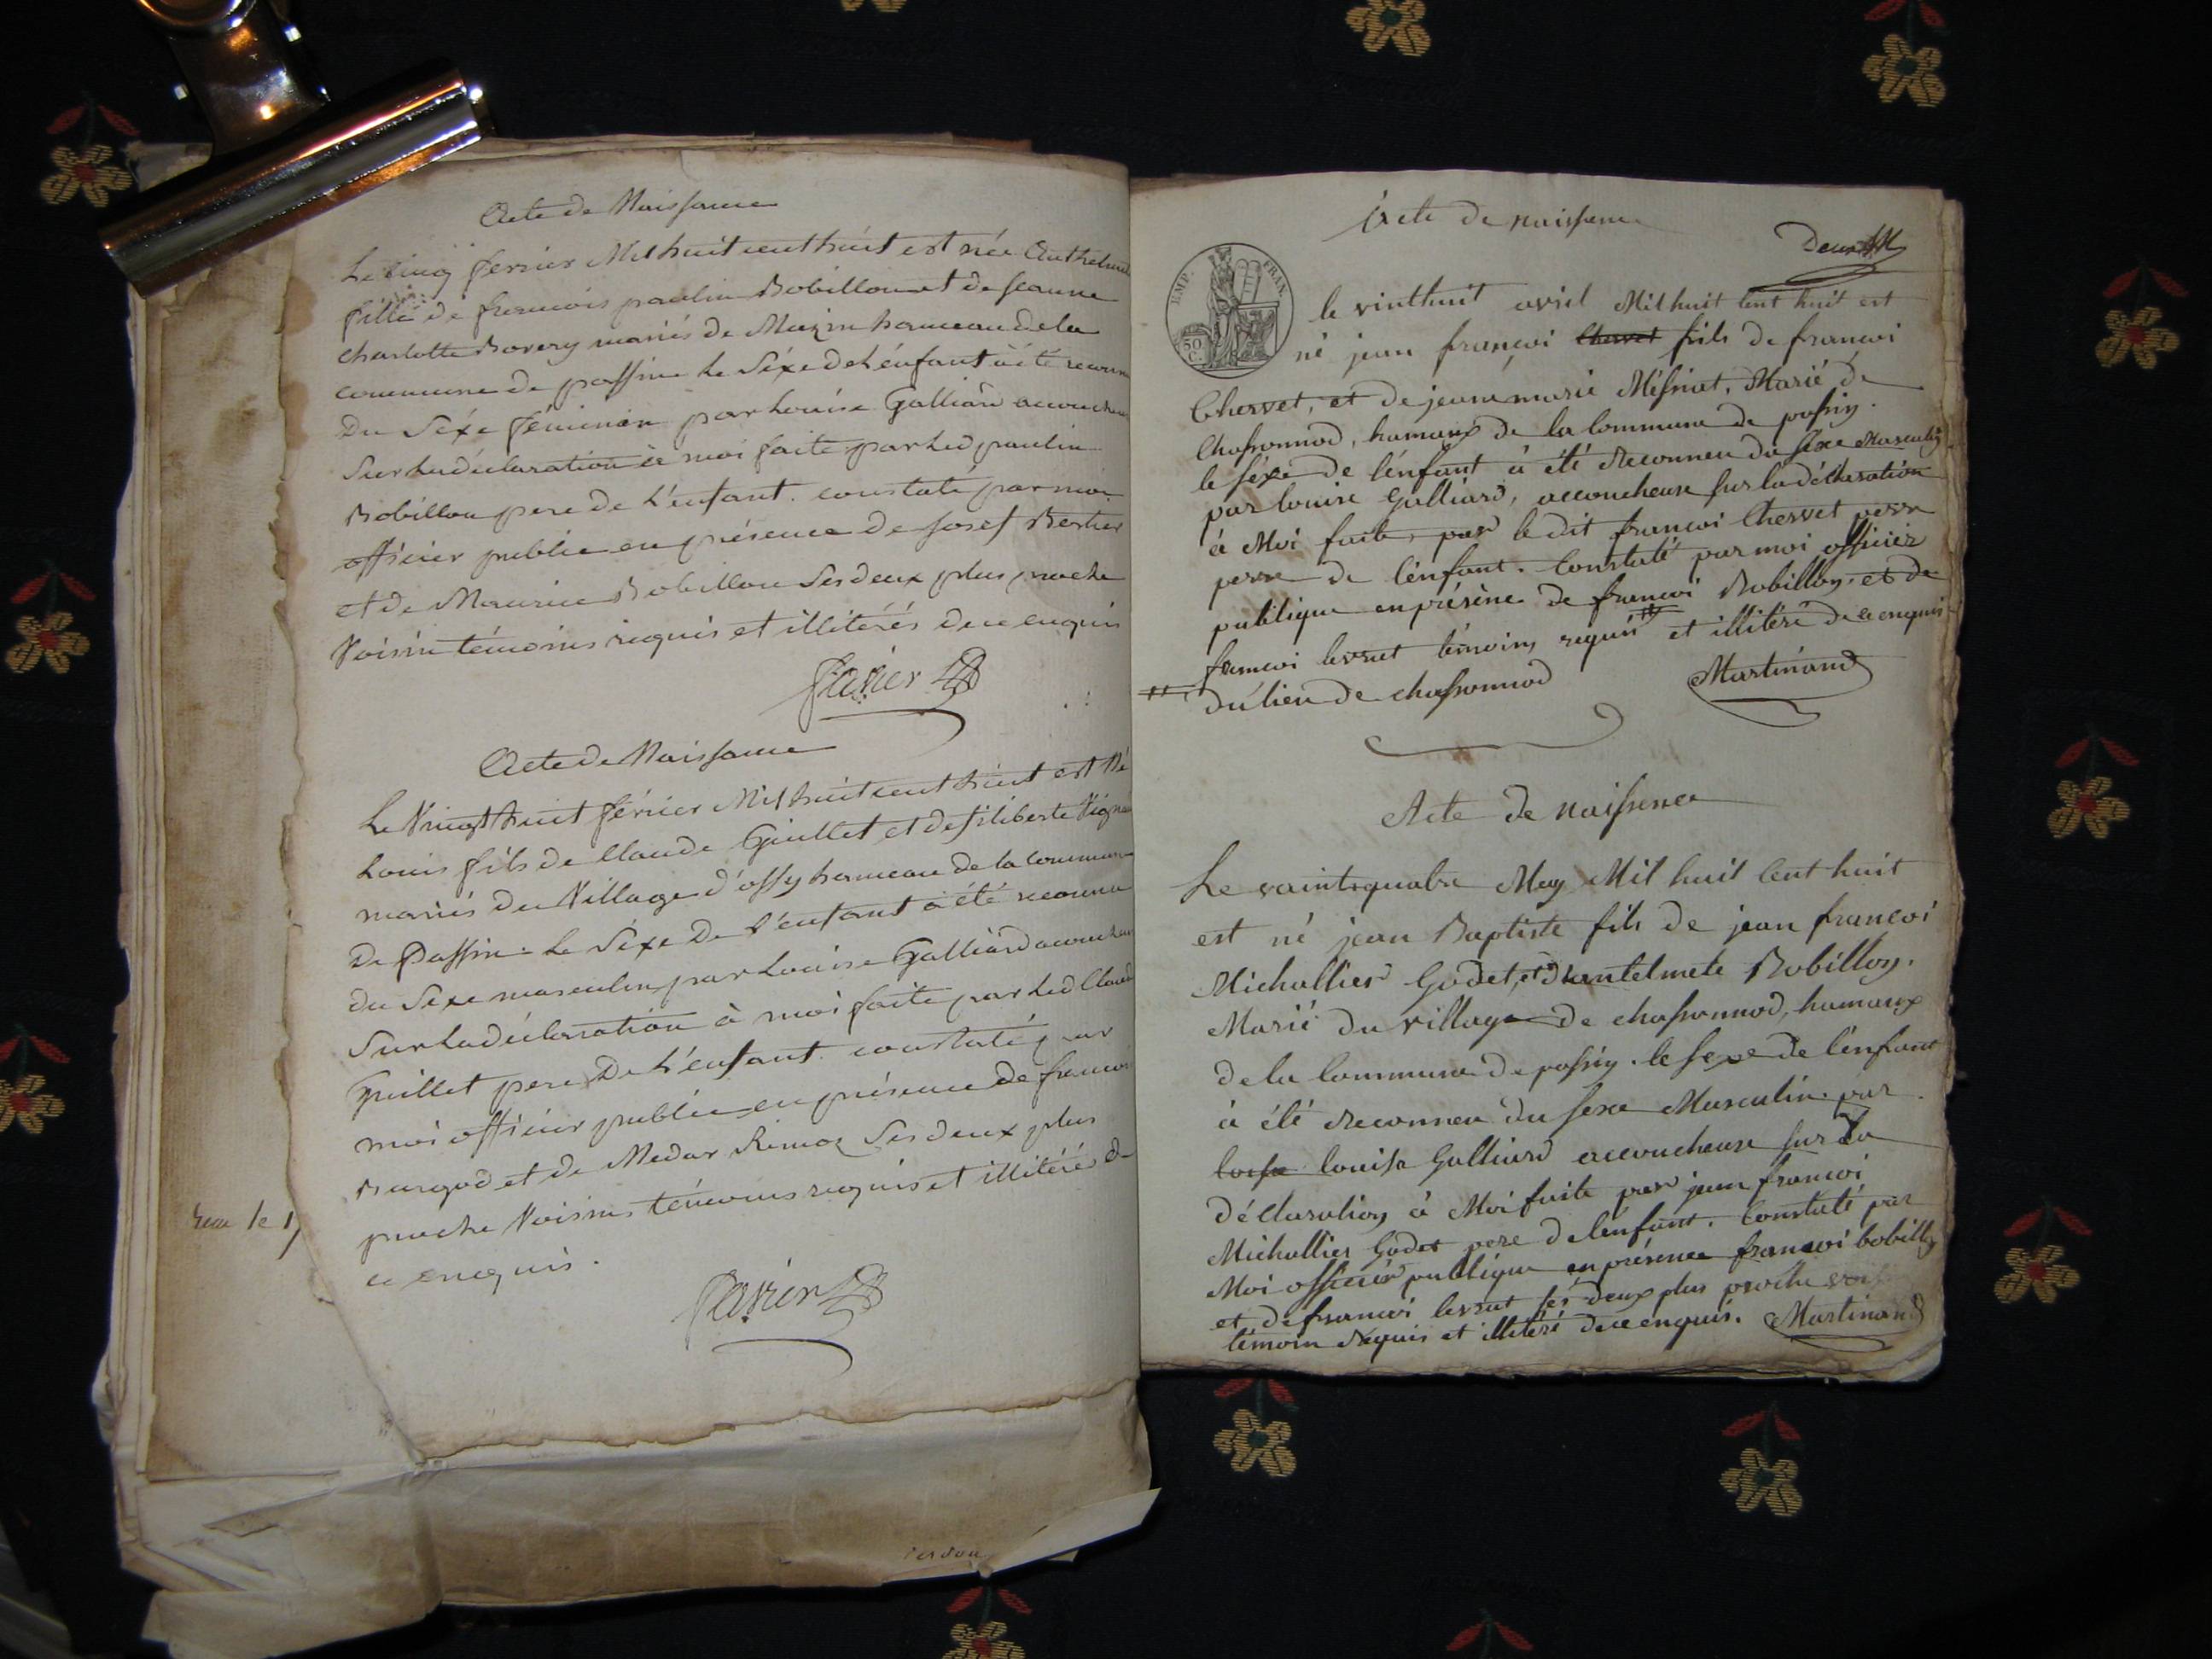 Acte de Naissance
Le cinq ferier Mil huit cent huit est née Anthelm
fille de francois paulin Bobillon et de Jeanne
Charlotte Bovery mariés de Mazin hameau de la
commune de passin le Séxe de L'énfant à été reconn
Du Séxe féminin par Louise Galliard acouch
Sur La déclaration à moi faite par Led paulin
Bobillon pere de L'enfant. constaté par moi
officier public en présence de Josef Berthet
et de Maurice Bobillon Ses deux plus proche
Voisin témoins requis et illitérés de ce enquis
Acte de Naissance
Le Vingt huit férier Mil huit cent huit est Né
Louis fils de Claude Guillet et de filiberte
mariés du Village d'ossy hameau de la commune
De Passin. Le Séxe De L'enfant à été reconnu
du Sexe masculin par Louise Galliard acouch
Sur La déclaration à moi faite par Led Claud
Guillet pere De L'enfant. constaté par
moi officier public en présence de francoi
Burgod et de Medar Rimoz Ses deux plus
proche Voisins témoins requis et illitérés de
ce enquis.
Acte de naissence
EMP. FRAN.
50 C.
le vinthuit avril Mil huit Cent huit est
né jean françoi Chervet fils de francoi
Chervet, et de jeanemarie Méssiat, Marié de
Chassonnod, hamaux de la Commune de passin.
le séxe de lénfant à été Reconneu du sexe Masculin
par louise Galliard, accoucheuse sur la déClaration
à Moi faite, par le dit françoi Chervet perre
perre de lénfant. Constaté par moi officier
publique en présence de françoi Bobillon, et de
francoi levrat témoins requis et illitéré de ce enquis
du lieu de chassonnod
Martinand
Acte de naissence
Le vaintquatre May Mil huit Cent huit
est né jean Baptiste fils de jean francoi
Michallier Godet, et dantelmete Bobillon.
Marié du village de chassonnod, hamaux
de la Commune de passin. le sexe de lénfant
à été Reconneu du sexe Masculin. par
louise Galliard accoucheuse sur la
déClaration à Moi faite par jean francoi
Michallier Godet pere de lénfant. Constaté par
Moi officier publique en présence francoi bobillon
et de francoi levrat ses deux plus proche
témoin Requis et illitéré de ce enquis. Martinand